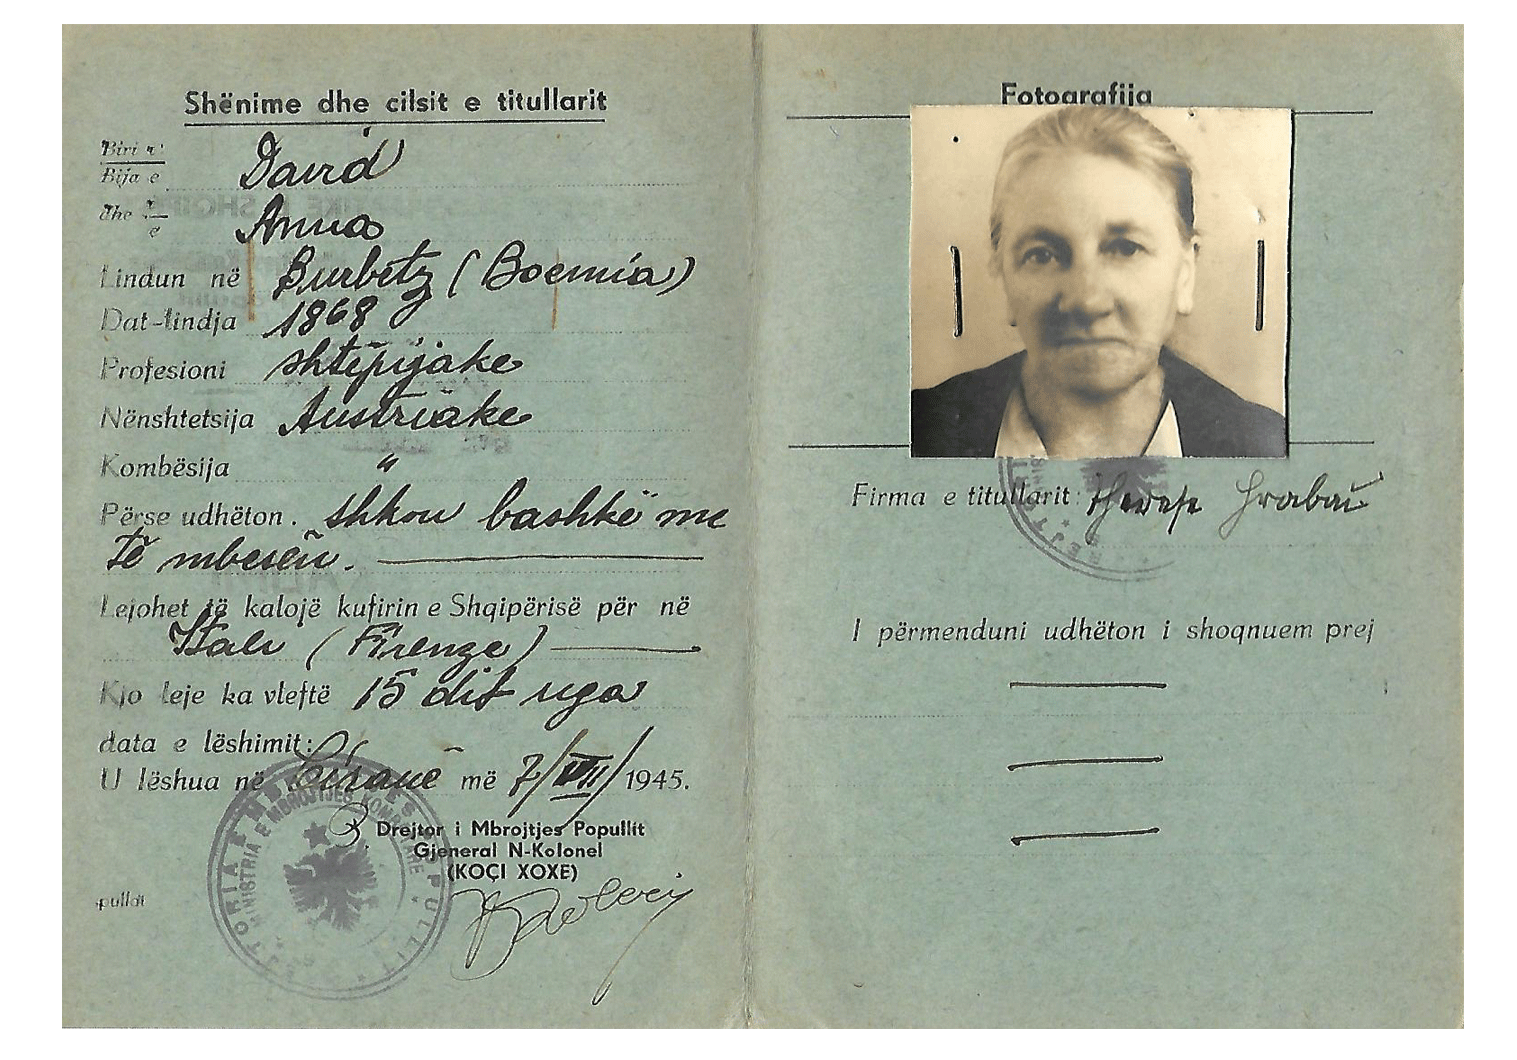 Shënime dhe cilsit e titullarit
Biri i
Bija e
David
dhe i
e
Anna
Lindun në Burbetz (Boemia)
Dat-lindja 1868
Profesioni shtëpijake
Nënshtetsija Austriake
Kombësija "
Përse udhëton. shkon bashkë me
të mbesën.
Lejohet të kalojë kufirin e Shqipërisë për në
Itali (Firenze)
Kjo leje ka vleftë 15 dit nga
data e lëshimit:
U lëshua në Tiranë më 7/VIII/1945.
Drejtor i Mbrojtjes Popullit
Gjeneral N-Kolonel
(KOÇI XOXE)
pullit
Fotografija
Firma e titullarit: Therese Hrabau
I përmenduni udhëton i shoqnuem prej